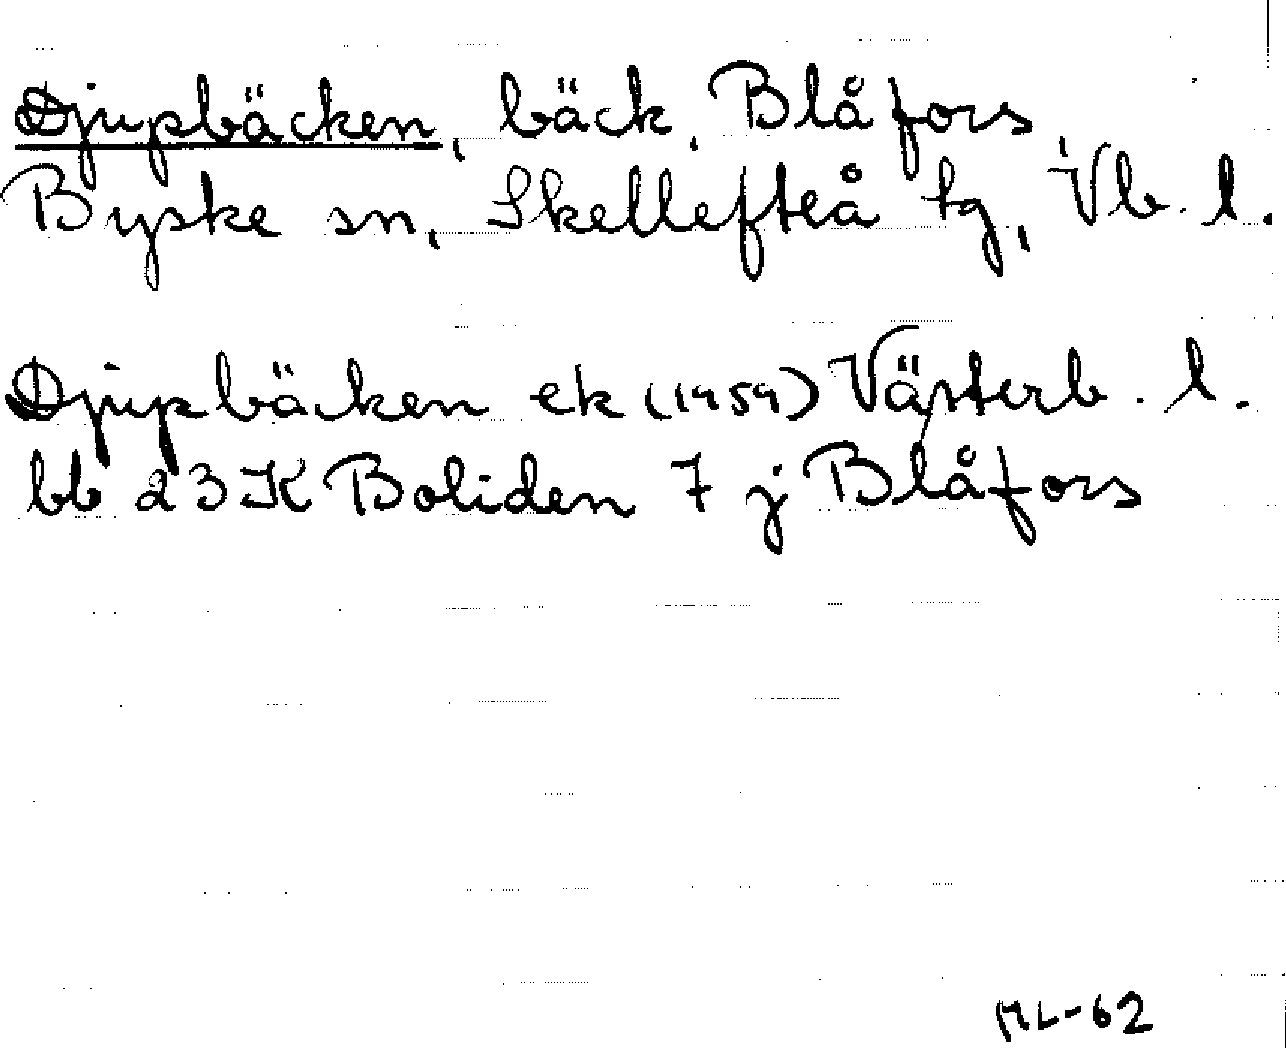 Djupbäcken, bäck, Blåfors,
Byske sn, Skellefteå tg, Vb. l.
Djupbäcken ek (1959) Västerb. l.
bb 23K Boliden 7 j Blåfors
ML-62